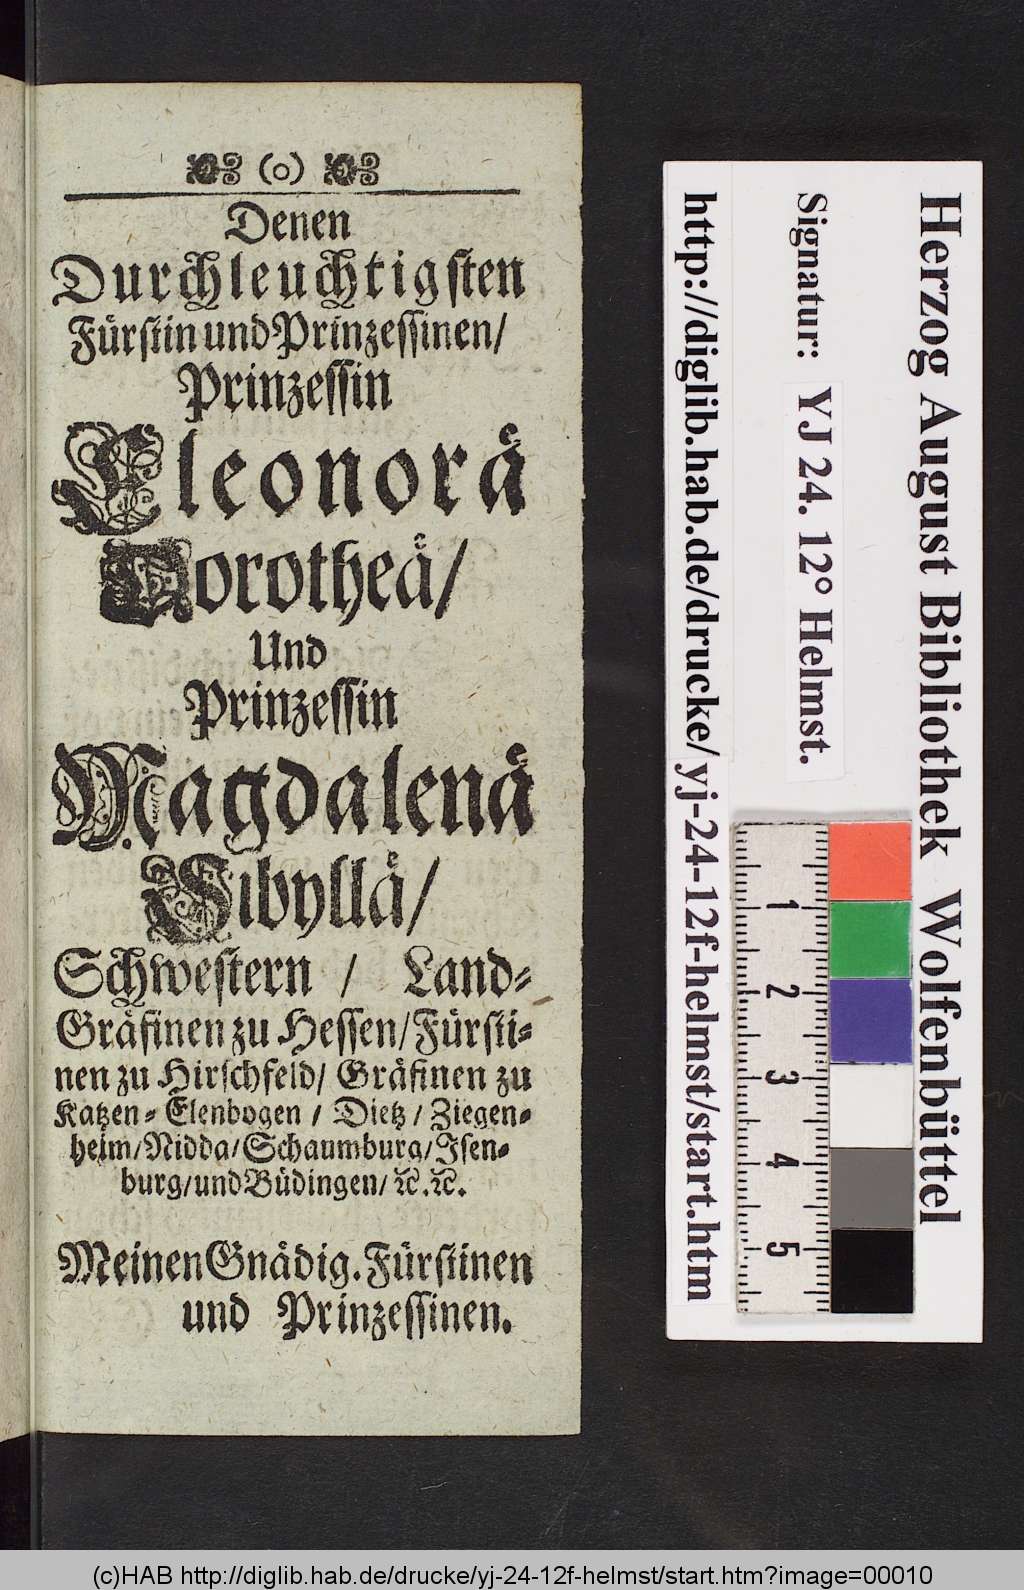 (o)
Denen
Durchleuchtigsten
Fürstin und Prinzessinen/
Prinzessin
Eleonorä
Dorotheä/
Und
Prinzessin
Magdalenä
Sibyllä/
Schwestern / Land-
Gräfinen zu Hessen/ Fürsti-
nen zu Hirschfeld/ Gräfinen zu
Katzen-Elenbogen / Dietz / Ziegen-
heim/ Nidda/ Schaumburg/ Isen-
burg/ und Büdingen/ ꝛc. ꝛc.
Meinen Gnädig. Fürstinen
und Prinzessinen.
Herzog August Bibliothek Wolfenbüttel
Signatur: YJ 24. 12° Helmst.
http://diglib.hab.de/drucke/yj-24-12f-helmst/start.htm
1
2
3
4
5
(c)HAB http://diglib.hab.de/drucke/yj-24-12f-helmst/start.htm?image=00010